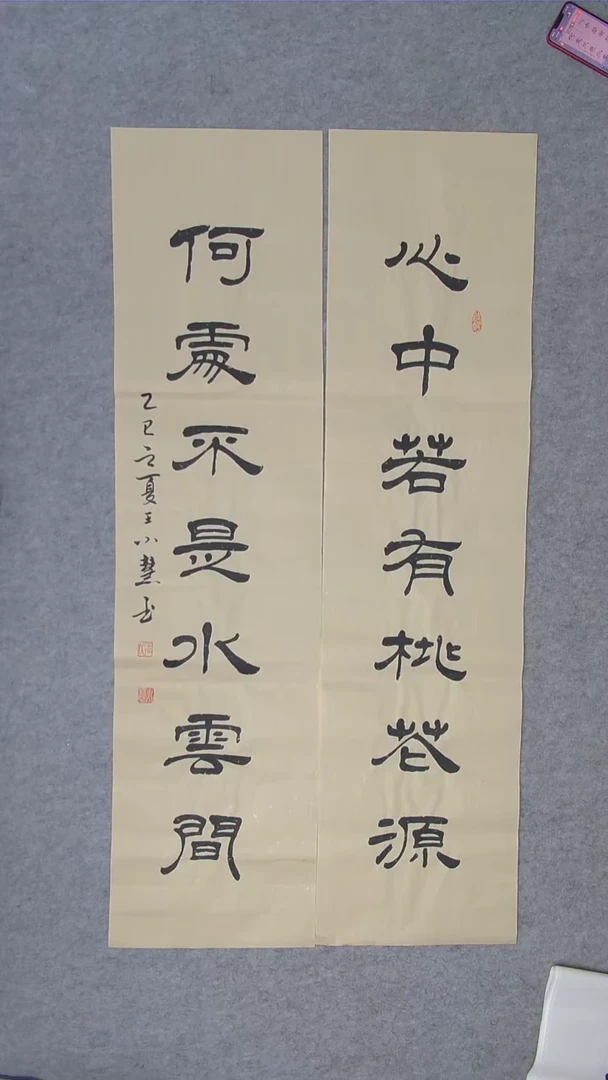 心中若有桃花源
何處不是水雲間
乙巳立夏王小慧書